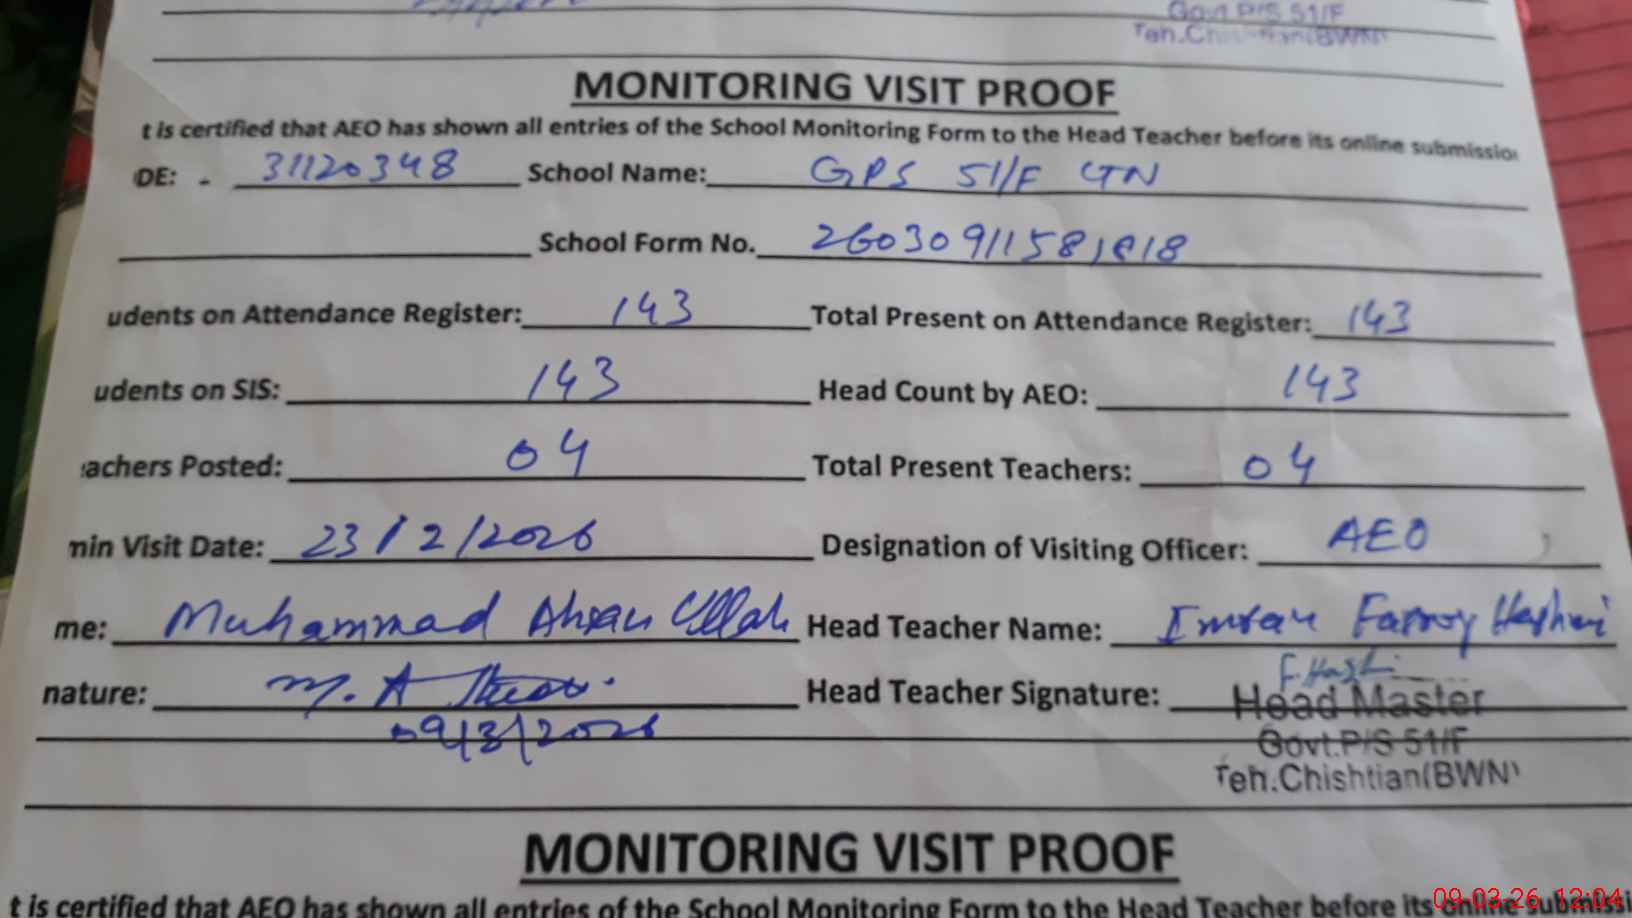 Govt P/S 51/F
Teh.Chishtian(BWN)
MONITORING VISIT PROOF
t is certified that AEO has shown all entries of the School Monitoring Form to the Head Teacher before its online submission
DE: - 31120348 School Name: GPS 51/F CTN
School Form No.
udents on Attendance Register: 143 Total Present on Attendance Register: 143
udents on SIS: 143 Head Count by AEO: 143
achers Posted: 04 Total Present Teachers: 04
min Visit Date: 23/2/2026 Designation of Visiting Officer: AEO
me: Muhammad Ahsan Ullah Head Teacher Name: Imran Farooq Hashmi
nature: M. A Head Teacher Signature: F. Hash
Head Master
09/3/2026 Govt.P/S 51/F
Teh.Chishtian(BWN)
MONITORING VISIT PROOF
t is certified that AEO has shown all entries of the School Monitoring Form to the Head Teacher before its online submissi
09-03-26 12:04